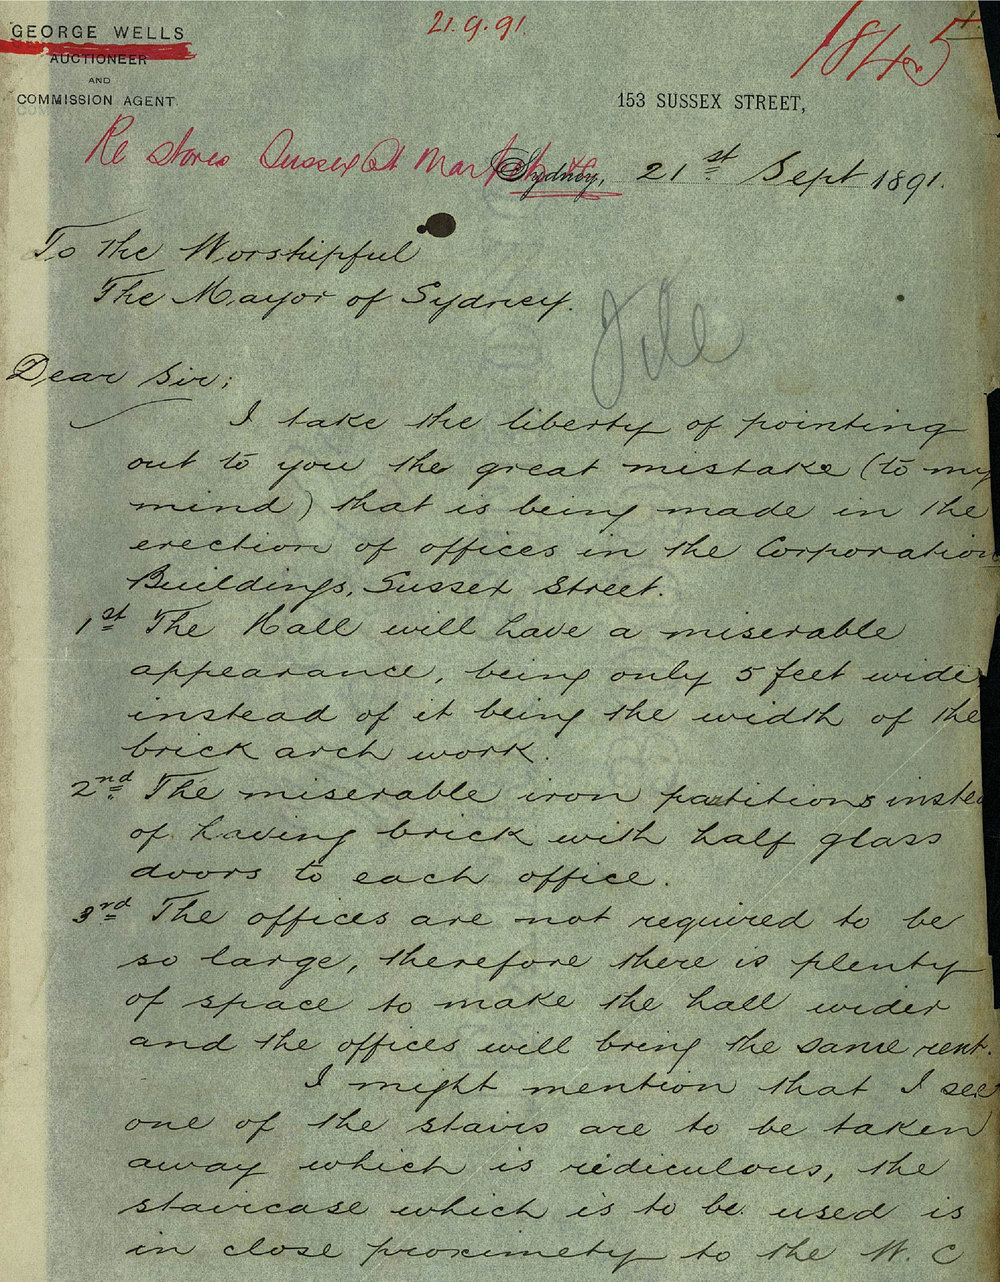 GEORGE WELLS
AUCTIONEER
AND
COMMISSION AGENT.
21.9.91.
1845
153 SUSSEX STREET,
Re stores Sussex St Markets
Sydney, 21st Sept 1891.
To the Worshipful
The Mayor of Sydney.
File
Dear Sir;
I take the liberty of pointing
out to you the great mistake (to my
mind) that is being made in the
erection of offices in the Corporation
Buildings, Sussex Street.
1st The Hall will have a miserable
appearance, being only 5 feet wide,
instead of it being the width of the
brick arch work.
2nd The miserable iron partitions instea
of having brick with half glass
doors to each office.
3rd The offices are not required to be
so large, therefore there is plenty
of space to make the hall wider
and the offices will bring the same rent.
I might mention that I see
one of the stairs are to be taken
away which is rediculous, the
staircase which is to be used is
in close proximety to the W. C